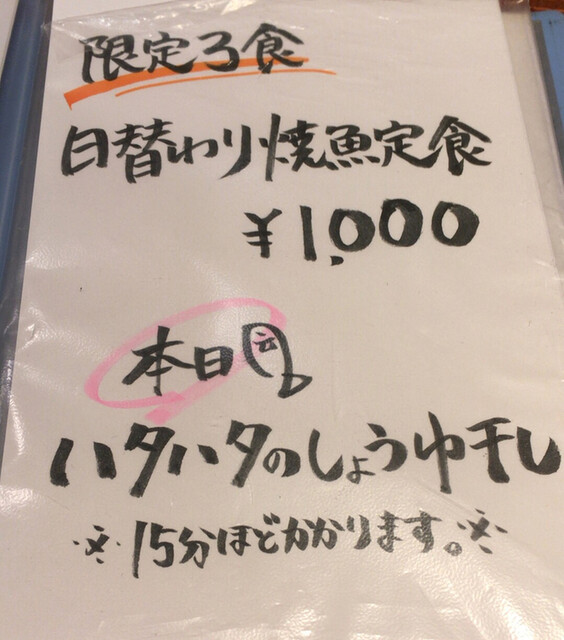 限定3食
日替わり焼魚定食
¥1,000
本日
ハタハタのしょうゆ干し
※15分ほどかかります。※